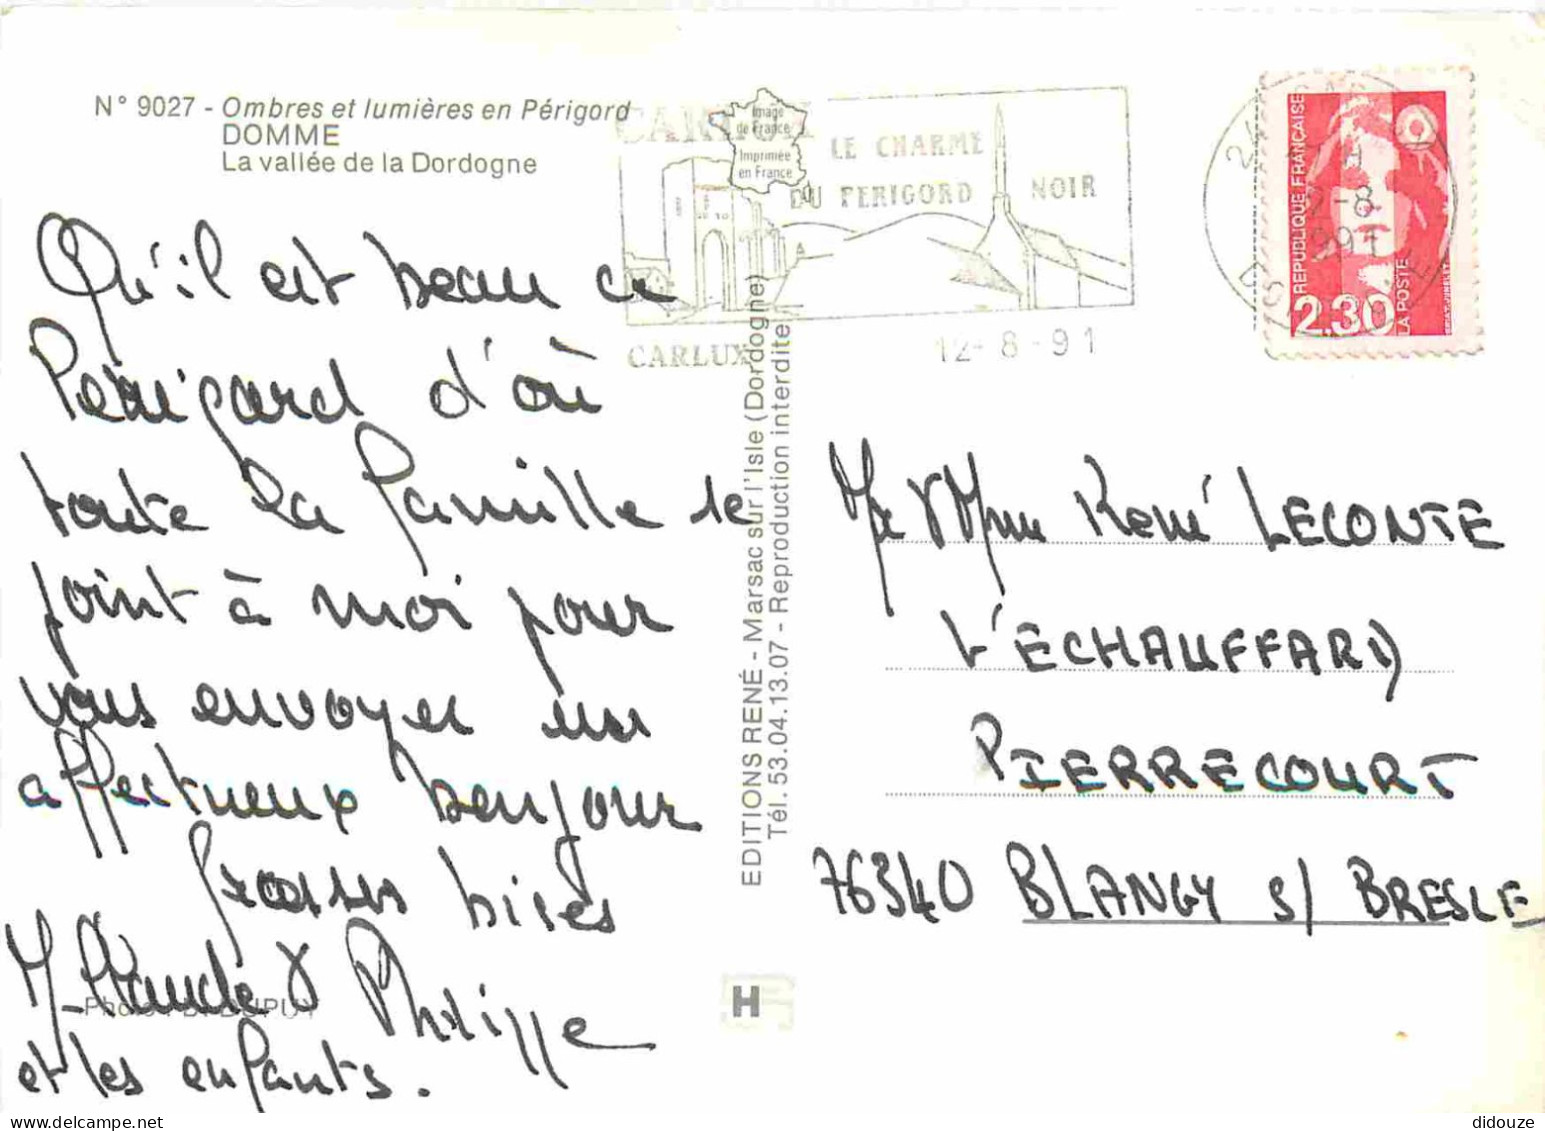 N° 9027 - Ombres et lumières en Périgord
DOMME
La vallée de la Dordogne
CARLUX
LE CHARME
DU PERIGORD NOIR
Image
de France
Imprimée
en France
CARLUX
12-8-91
12-8
1991
REPUBLIQUE FRANÇAISE
2,30
LA POSTE
Qu'il est beau ce
Périgord d'où
toute la famille se
joint à moi pour
vous envoyer un
affectueux bonjour
Grosses bises
M-Claude & Philippe
et les enfants.
Photo : D. DUPUY
EDITIONS RENÉ - Marsac sur l'Isle (Dordogne)
Tél. 53.04.13.07 - Reproduction interdite
H
Mr & Mme René LECONTE
L'ECHAUFFARD
PIERRECOURT
76340 BLANGY s/ BRESLE
didouze